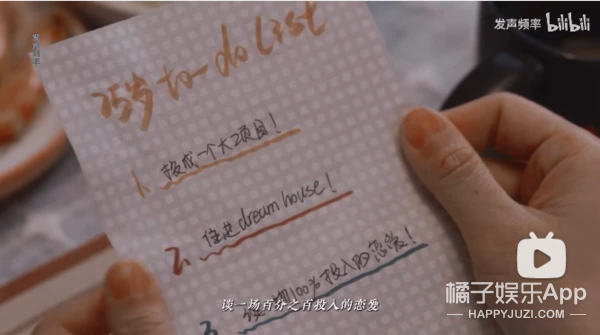 发声频率 bilibili
发声频率
25岁 to-do list
1. 投成一个大项目！
2. 住进dream house！
3. 谈一场100%投入的恋爱！
谈一场百分之百投入的恋爱
橘子娱乐App
HAPPYJUZI.COM